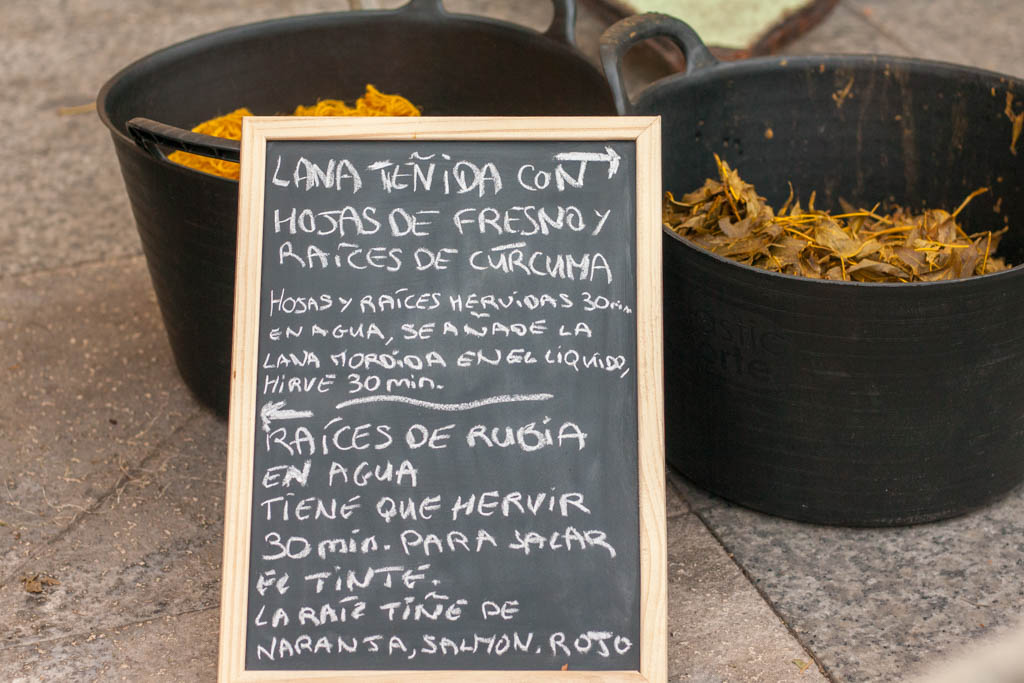 LANA TEÑIDA CON →
HOJAS DE FRESNO Y
RAÍCES DE CÚRCUMA
HOJAS Y RAÍCES HERVIDAS 30 min
EN AGUA, SE AÑADE LA
LANA MORDIDA EN EL LÍQUIDO,
HIRVE 30 min.
←
RAÍCES DE RUBIA
EN AGUA
TIENE QUE HERVIR
30 min. PARA SACAR
EL TINTE.
LA RAÍZ TIÑE DE
NARANJA, SALMON, ROJO